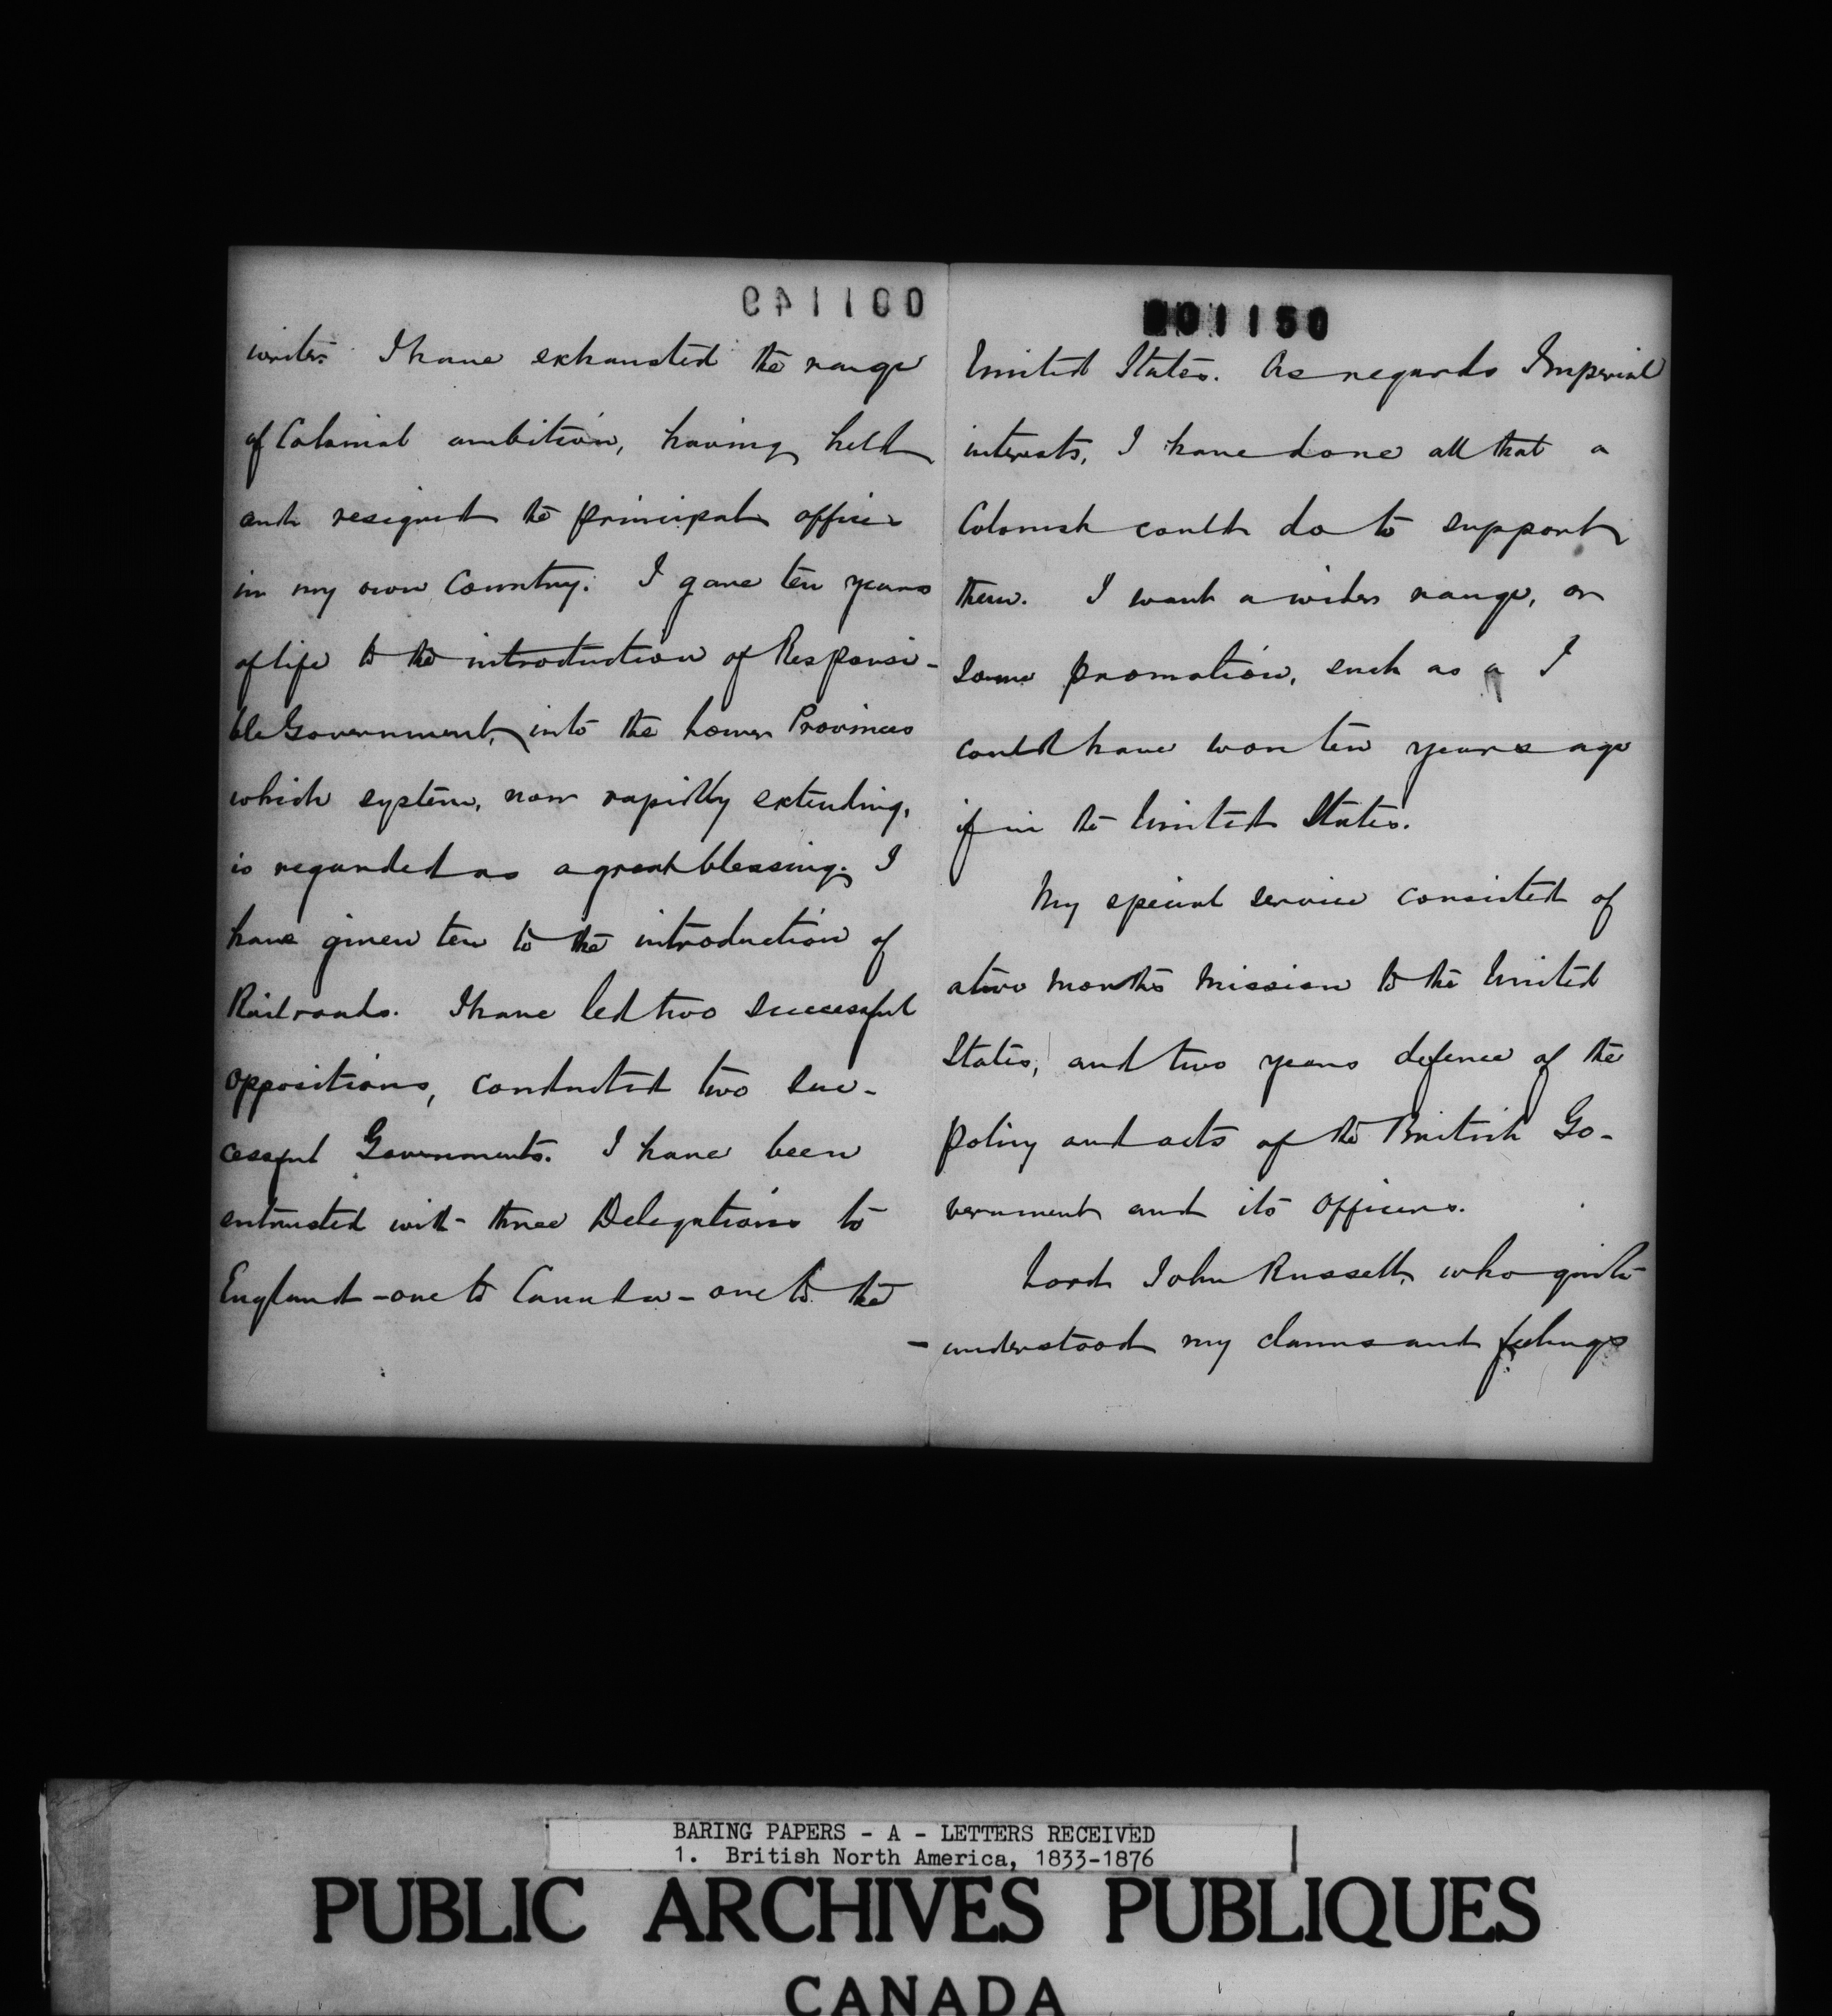 001149
writer. I have exhausted the range
of Colonial ambition, having held
and resigned the principal offices
in my own Country. I gave ten years
of life to the introduction of Responsi-
ble Government, into the Lower Provinces
which system, now rapidly extending,
is regarded as a great blessing. I
have given ten to the introduction of
Railroads. I have led two successful
oppositions, conducted two suc-
cessful Governments. I have been
entrusted with three Delegations to
England - one to Canada - one to the
001150
United States. As regards Imperial
interests, I have done all that a
Colonist could do to support
them. I want a wider range, or
some promotion, such as I
could have won ten years ago
if in the United States.
My special service consisted of
a two months mission to the United
States, and two years defence of the
policy and acts of the British Go-
vernment and its officers.
Lord John Russell, who quite
- understood my claims and feelings
BARING PAPERS - A - LETTERS RECEIVED
1. British North America, 1833-1876
PUBLIC ARCHIVES PUBLIQUES
CANADA